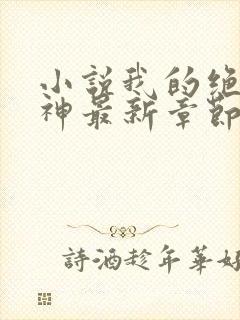 小说我的绝
神最新章节
詩酒趁年華好